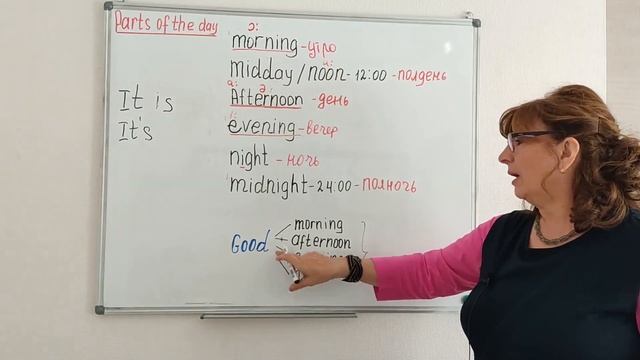 Parts of the day
morning - утро
midday / noon - 12:00 - полдень
Afternoon - день
evening - вечер
night - ночь
midnight - 24:00 - полночь
It is
It's
Good
morning
afternoon